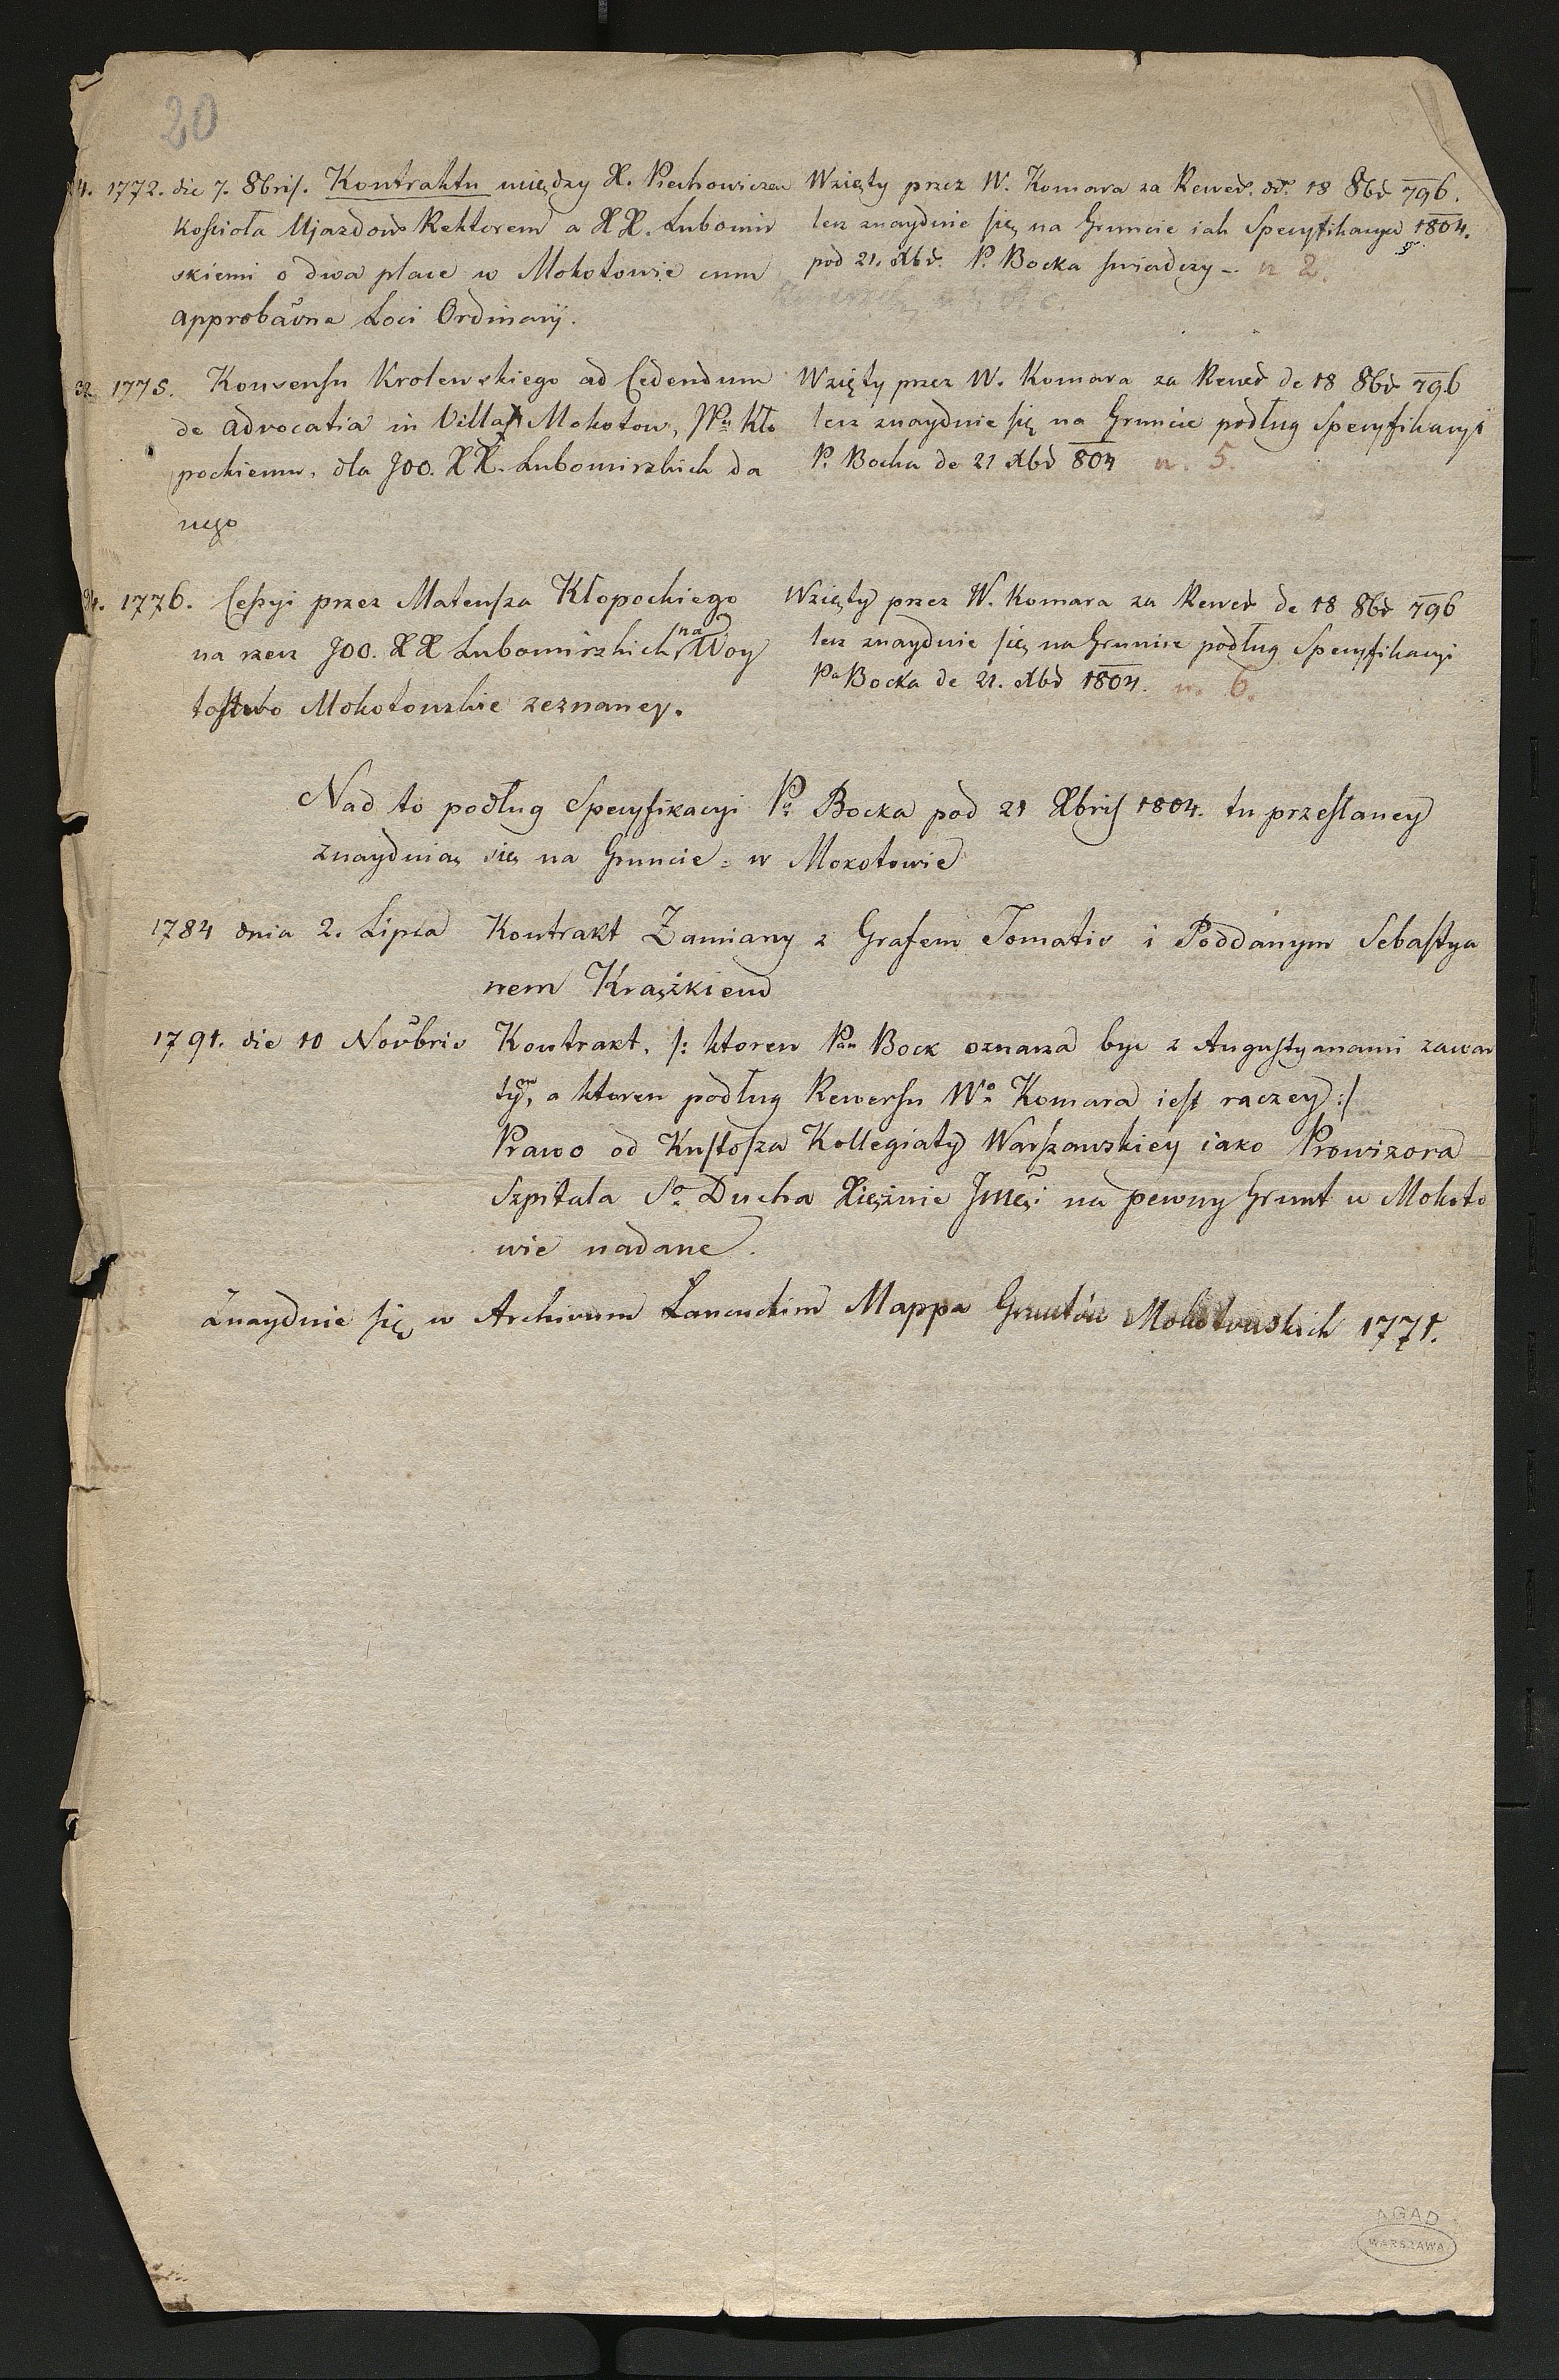 20
1772. die 7. 8bris. Kontraktu między X. Piechowiczem
Kościoła Ujazdow Rektorem a XX. Lubomir
skiemi o dwa place w Mokotowie cum
approbãone Loci Ordinarij.
Wzięty przez W. Komara za Rewer. dd. 18 8br 796.
lecz znayduie się na Gruncie iak Specyfikacya
pod 21. Xbr. 1804. P. Bocka swiadczy - n 2.
32. 1775. Konsensu Krolewskiego ad Cedendum
de advocatia in Villa Mokotow, Pu Kło
pockiemu, dla JOO. XX. Lubomirskich da
nego
Wzięty przez W. Komara za Rewer de 18 8br 796
lecz znayduie się na Gruncie podług Specyfikacyi
P. Bocka de 21 Xbr 804 n. 5.
1776. Cessyi przez Mateusza Kłopockiego
na rzecz JOO. XX Lubomirskich na Woy
tostwo Mokotowskie zeznaney.
Wzięty przez W. Komara za Rewer de 18 8br 796
lecz znayduie się na Gruncie podług Specyfikacyi
Pa Bocka de 21. Xbr 1804. n. 6.
Nad to podług Specyfikacyi Pa Bocka pod 21 Xbris 1804. tu przesłaney
znayduią się na Gruncie w Mokotowie
1784 dnia 2. Lipca Kontrakt Zamiany z Grafem Tomatis i Poddanym Sebastya
nem Krążkiem
1791. die 10 Novbris Kontrakt, /: ktoren Pan Bock oznacza byc z Augustyanami zawar
tym, a ktoren podług Rewersu Wo Komara iest raczey :/
Prawo od Kustosza Kollegiaty Warszawskiey iako Prowizora
Szpitala So Ducha Xiężnie Jmci na pewny Grunt w Mokoto
wie nadane.
Znayduie się w Archivum Lancuckim Mappa Gruntów Mokotowskich 1771.
AGAD
WARSZAWA